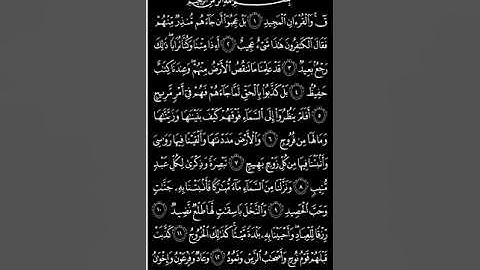 بسم الله الرحمن الرحيم
قٓ ۚ وَٱلْقُرْءَانِ ٱلْمَجِيدِ ١ بَلْ عَجِبُوٓا۟ أَن جَآءَهُم مُّنذِرٌ مِّنْهُمْ
فَقَالَ ٱلْكَٰفِرُونَ هَٰذَا شَىْءٌ عَجِيبٌ ٢ أَءِذَا مِتْنَا وَكُنَّا تُرَابًا ۖ ذَٰلِكَ
رَجْعٌۢ بَعِيدٌ ٣ قَدْ عَلِمْنَا مَا تَنقُصُ ٱلْأَرْضُ مِنْهُمْ ۖ وَعِندَنَا كِتَٰبٌ
حَفِيظٌۢ ٤ بَلْ كَذَّبُوا۟ بِٱلْحَقِّ لَمَّا جَآءَهُمْ فَهُمْ فِىٓ أَمْرٍ مَّرِيجٍ
٥ أَفَلَمْ يَنظُرُوٓا۟ إِلَى ٱلسَّمَآءِ فَوْقَهُمْ كَيْفَ بَنَيْنَٰهَا وَزَيَّنَّٰهَا
وَمَا لَهَا مِن فُرُوجٍ ٦ وَٱلْأَرْضَ مَدَدْنَٰهَا وَأَلْقَيْنَا فِيهَا رَوَٰسِىَ
وَأَنۢبَتْنَا فِيهَا مِن كُلِّ زَوْجٍۭ بَهِيجٍ ٧ تَبْصِرَةً وَذِكْرَىٰ لِكُلِّ عَبْدٍ
مُّنِيبٍ ٨ وَنَزَّلْنَا مِنَ ٱلسَّمَآءِ مَآءً مُّبَٰرَكًا فَأَنۢبَتْنَا بِهِۦ جَنَّٰتٍ
وَحَبَّ ٱلْحَصِيدِ ٩ وَٱلنَّخْلَ بَاسِقَٰتٍ لَّهَا طَلْعٌ نَّضِيدٌ ١٠
رِّزْقًا لِّلْعِبَادِ ۖ وَأَحْيَيْنَا بِهِۦ بَلْدَةً مَّيْتًا ۚ كَذَٰلِكَ ٱلْخُرُوجُ ١١ كَذَّبَتْ
قَبْلَهُمْ قَوْمُ نُوحٍ وَأَصْحَٰبُ ٱلرَّسِّ وَثَمُودُ ١٢ وَعَادٌ وَفِرْعَوْنُ وَإِخْوَٰنُ